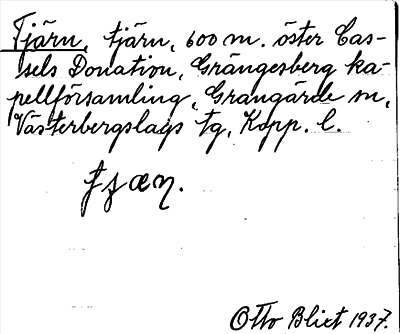 Tjärn, tjärn, 600 m. öster Cas-
sels Donation, Grängesberg ka-
pellförsamling, Grangärde sn,
Västerbergslags tg, Kopp. l.
tjæɳ.
Otto Blixt 1937.